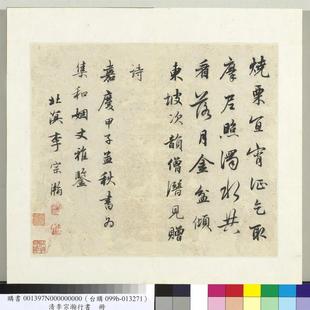 燒栗宜宵征乞取
摩尼照濁水共
看落月金盆傾
東坡次韻僧潛見贈
詩
嘉慶甲子孟秋書為
集和姻丈雅鑒
北溟李宗瀚
購書 001397N000000000(台購 099b-013271)
清李宗瀚行書 冊